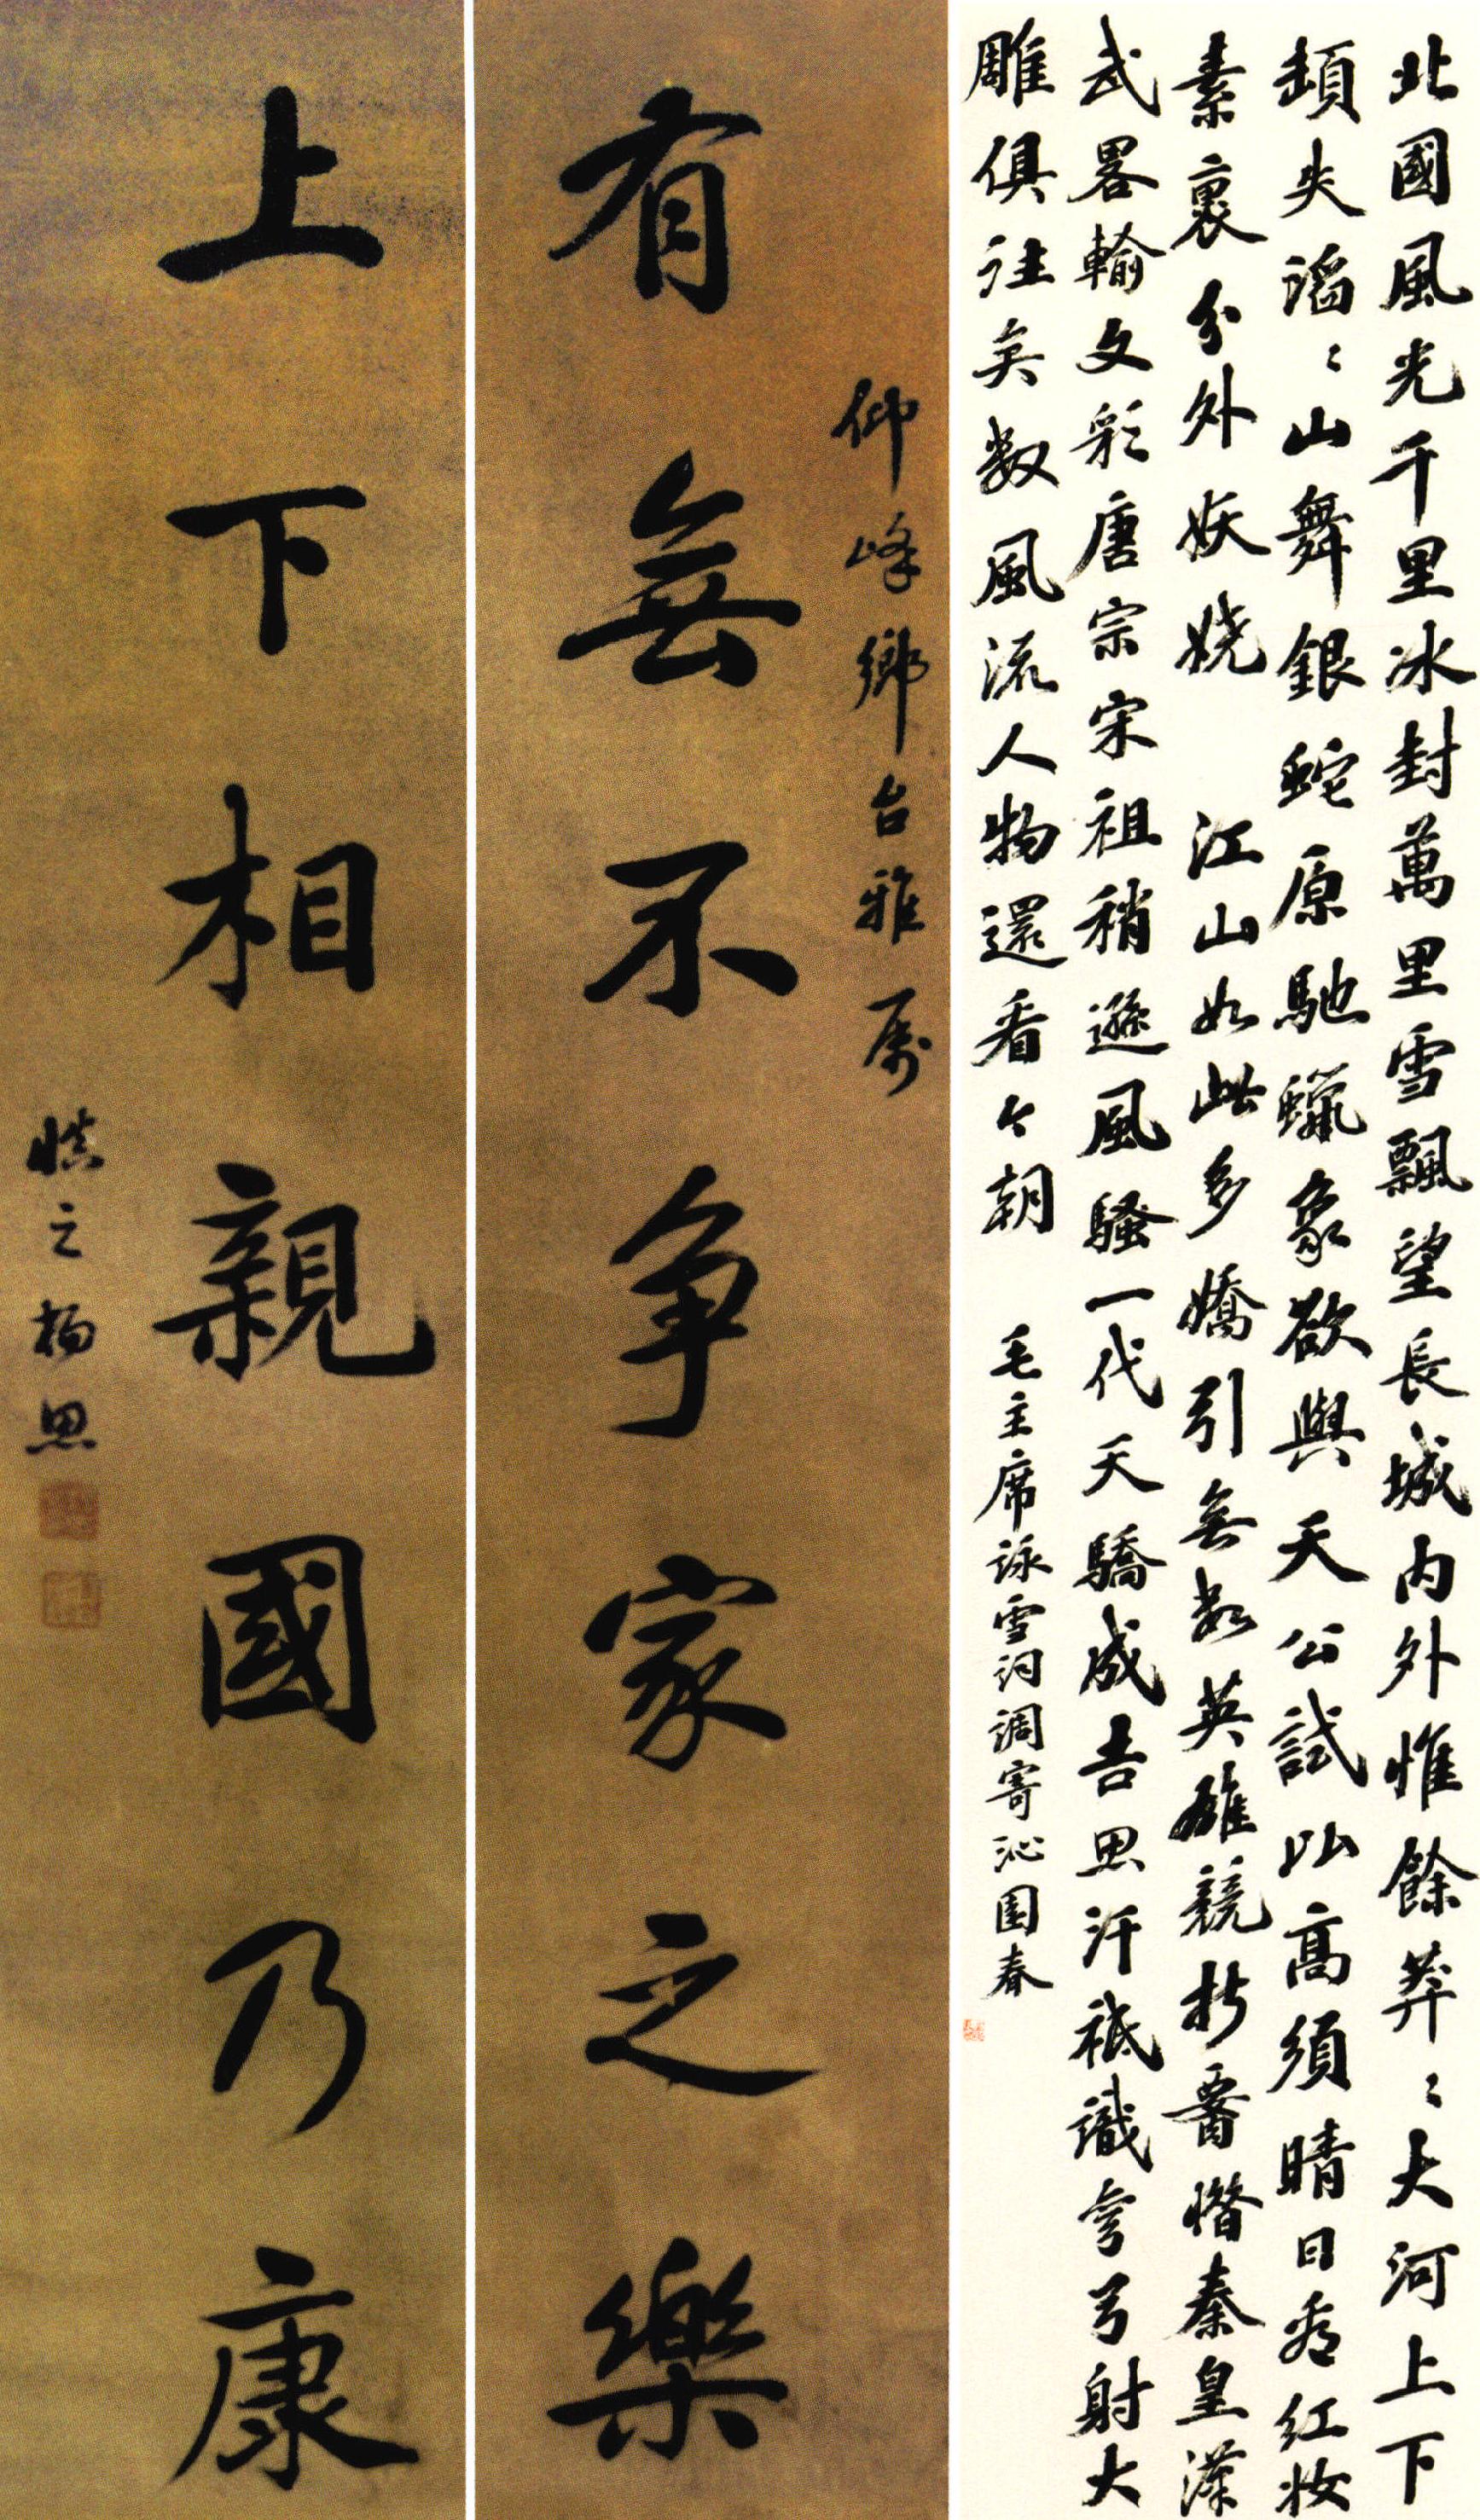 北國風光千里冰封萬里雪飄望長城內外惟餘莽〻大河上下
頓失滔〻山舞銀蛇原馳蠟象欲與天公試比高須晴日看紅妝
素裹分外妖娆 江山如此多嬌引無数英雄競折腰惜秦皇漢
武畧輸文彩唐宗宋祖稍遜風騷一代天驕成吉思汗衹識彎弓射大
雕俱往矣数風流人物還看今朝 毛主席詠雪词調寄沁園春
仰峰鄉台雅属
有無不争家之樂
上下相親國乃康
慎之楊思